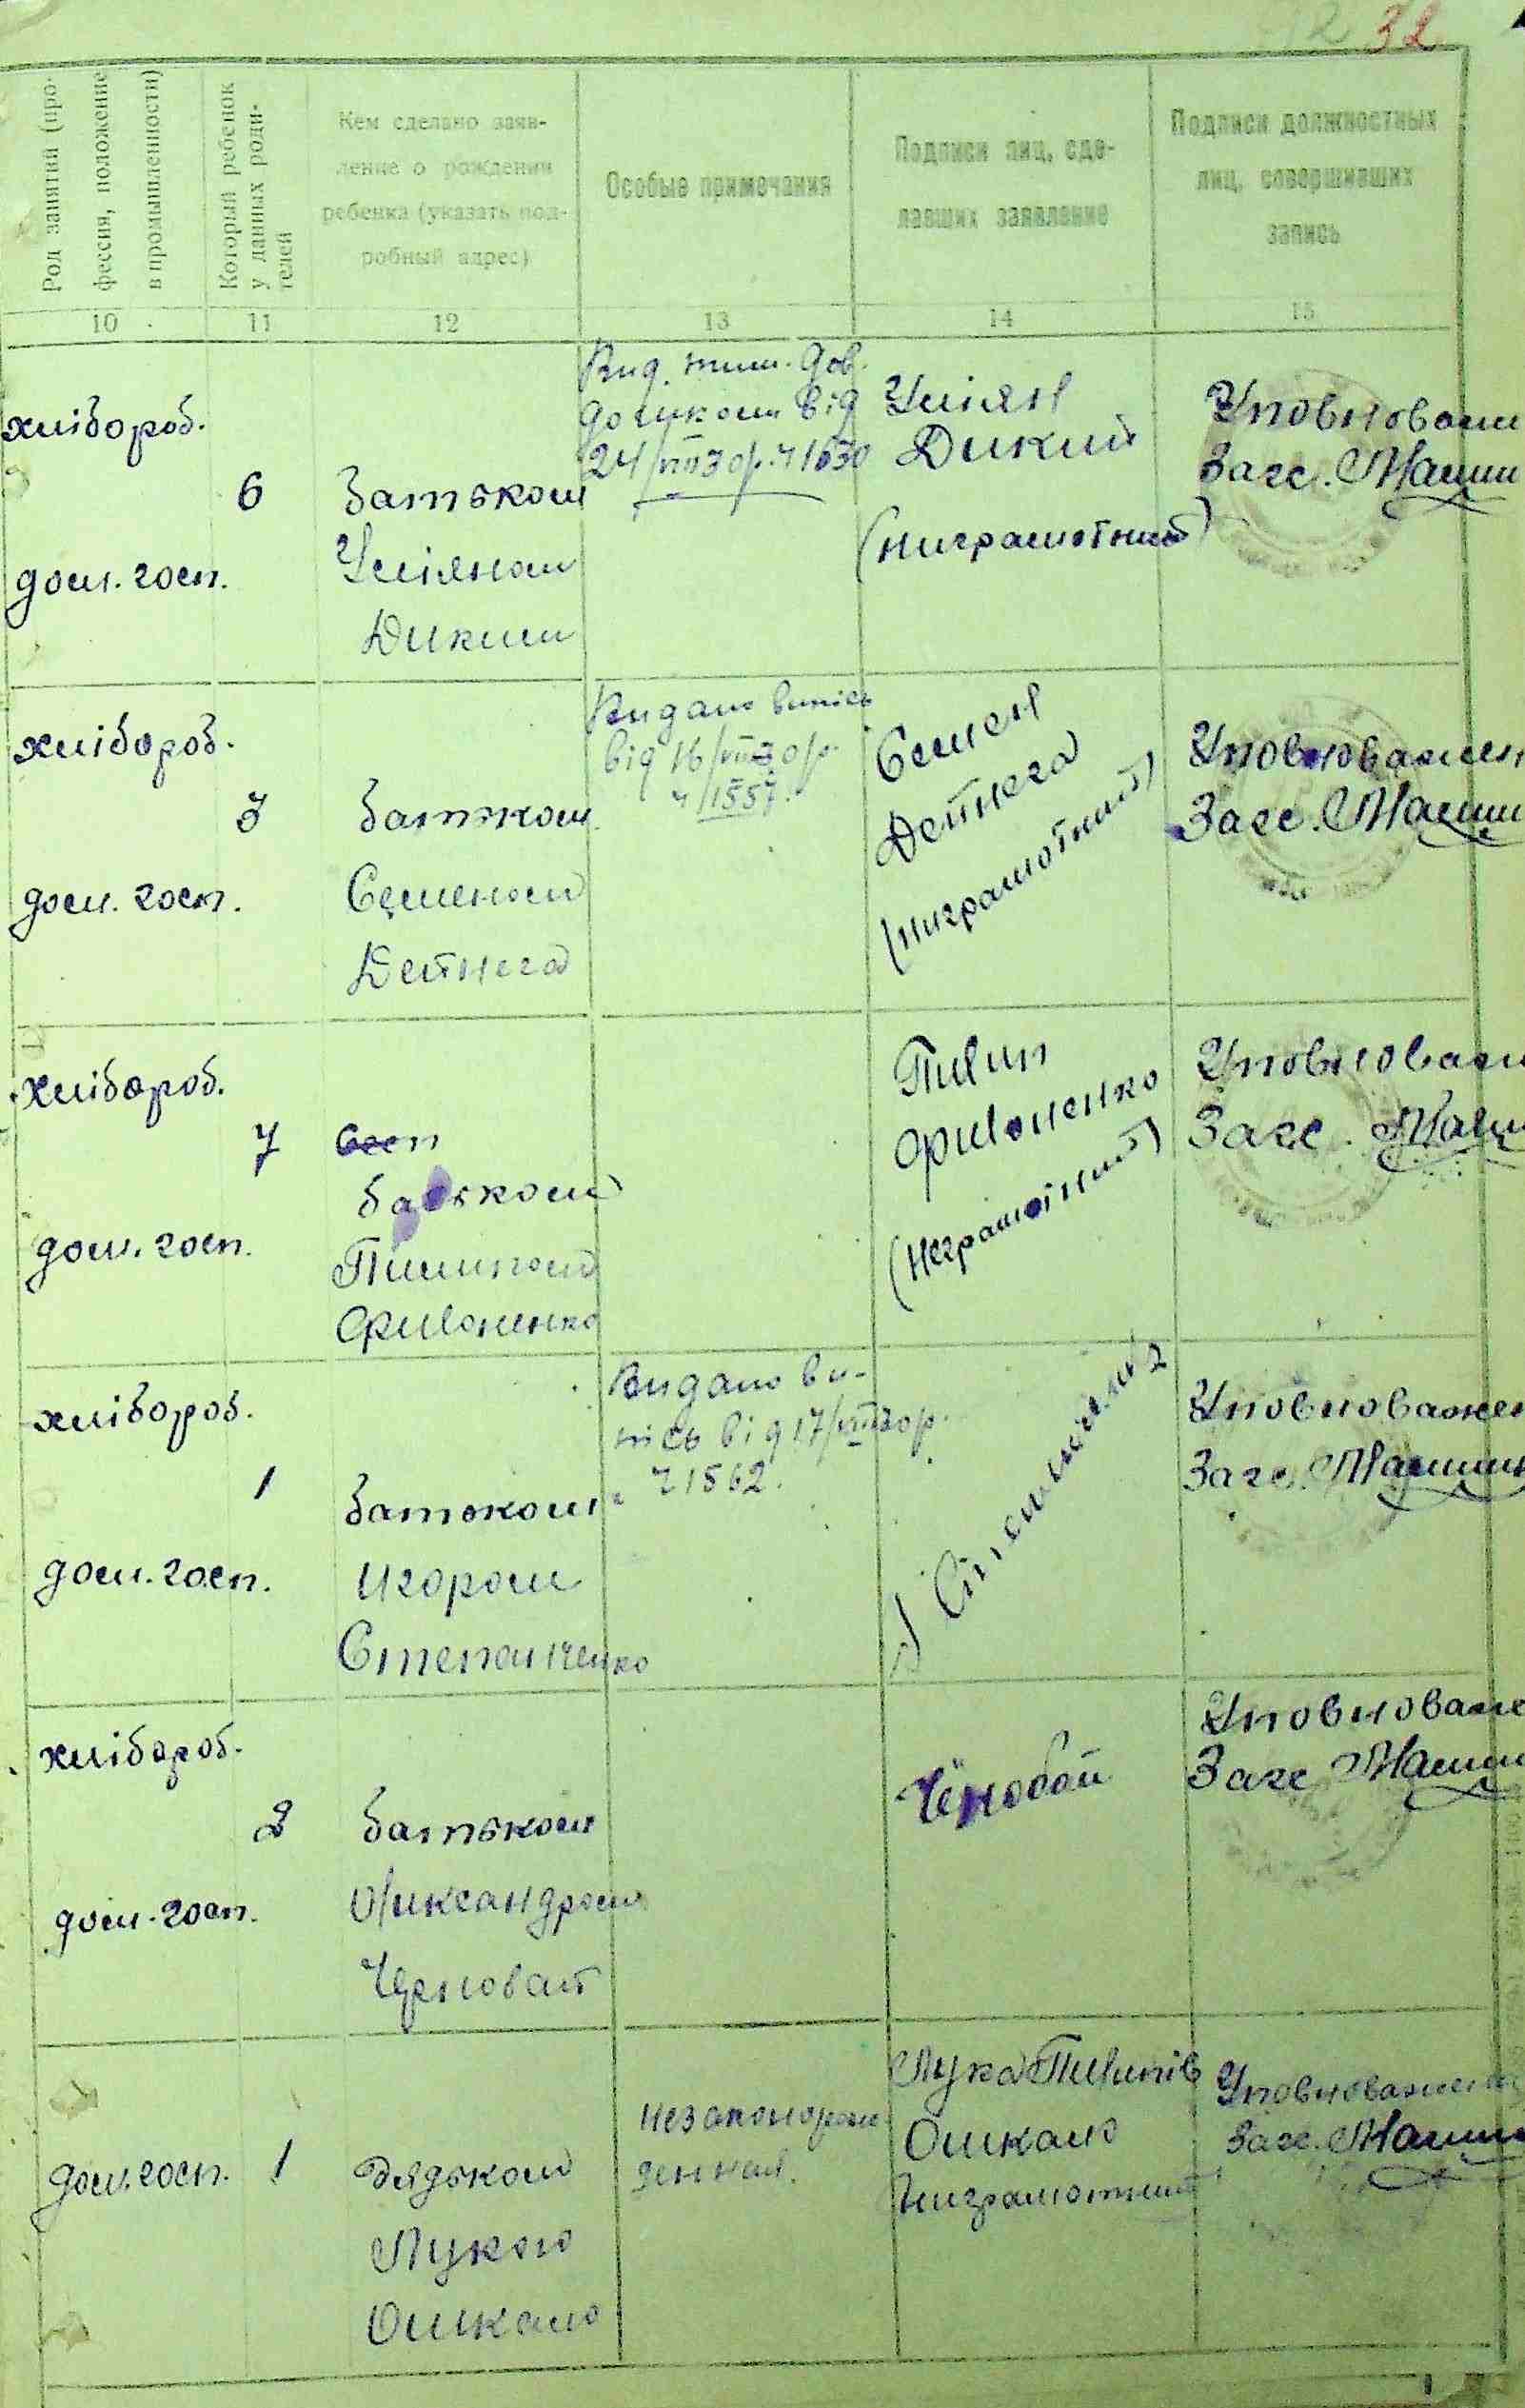 32
Род занятий (про-
фессия, положение
в промышленности)
Который ребенок
у данных роди-
телей
Кем сделано заяв-
ление о рождении
ребенка (указать под-
робный адрес)
Особые примечания
Подписи лиц, сде-
лавших заявление
Подписи должностных
лиц, совершивших
запись
10
11
12
13
14
15
хлібороб.
дом. госп.
6
батьком
Уліяном
Диким
Вид. тим. дов.
від
24/VII 30 р. ч 1630
Уліян
Дикий
(ниграмотний)
Уповноваж
Загс.
хлібороб.
дом. госп.
3
батьком
Семеном
Дейнега
Видано випісь
від 16/VII 30 р.
ч 1557.
Семен
Дейнега
(ниграмотний)
Уповноважен
Загс.
хлібороб.
дом. госп.
7
батьком
Пилипом
Филоненко
Пилип
Филоненко
(неграмотний)
Уповноваж
Загс.
хлібороб.
дом. госп.
1
батьком
Игором
Степанченко
Видано ви-
пісь від 17/VII 30 р.
ч 1562.
Уповноважен
Загс.
хлібороб.
2
дом. госп.
батьком
Олександром
Черновай
Уповноваже
Загс
дом. госп.
1
Дядьком
Лукою
Ошкало
незаконорож
денная.
Лука Пилипів
Ошкало
Ниграмотний
Уповноважен
Загс.